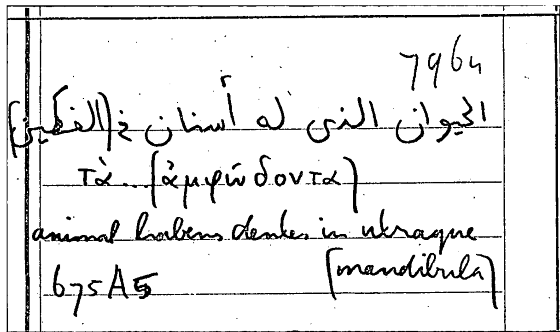 796u
الحيوان الذى له أسنان فى (الفكين)
τὰ...(ἀμφώδοντα)
animal habens dentes in utraque
(mandibula)
675A5